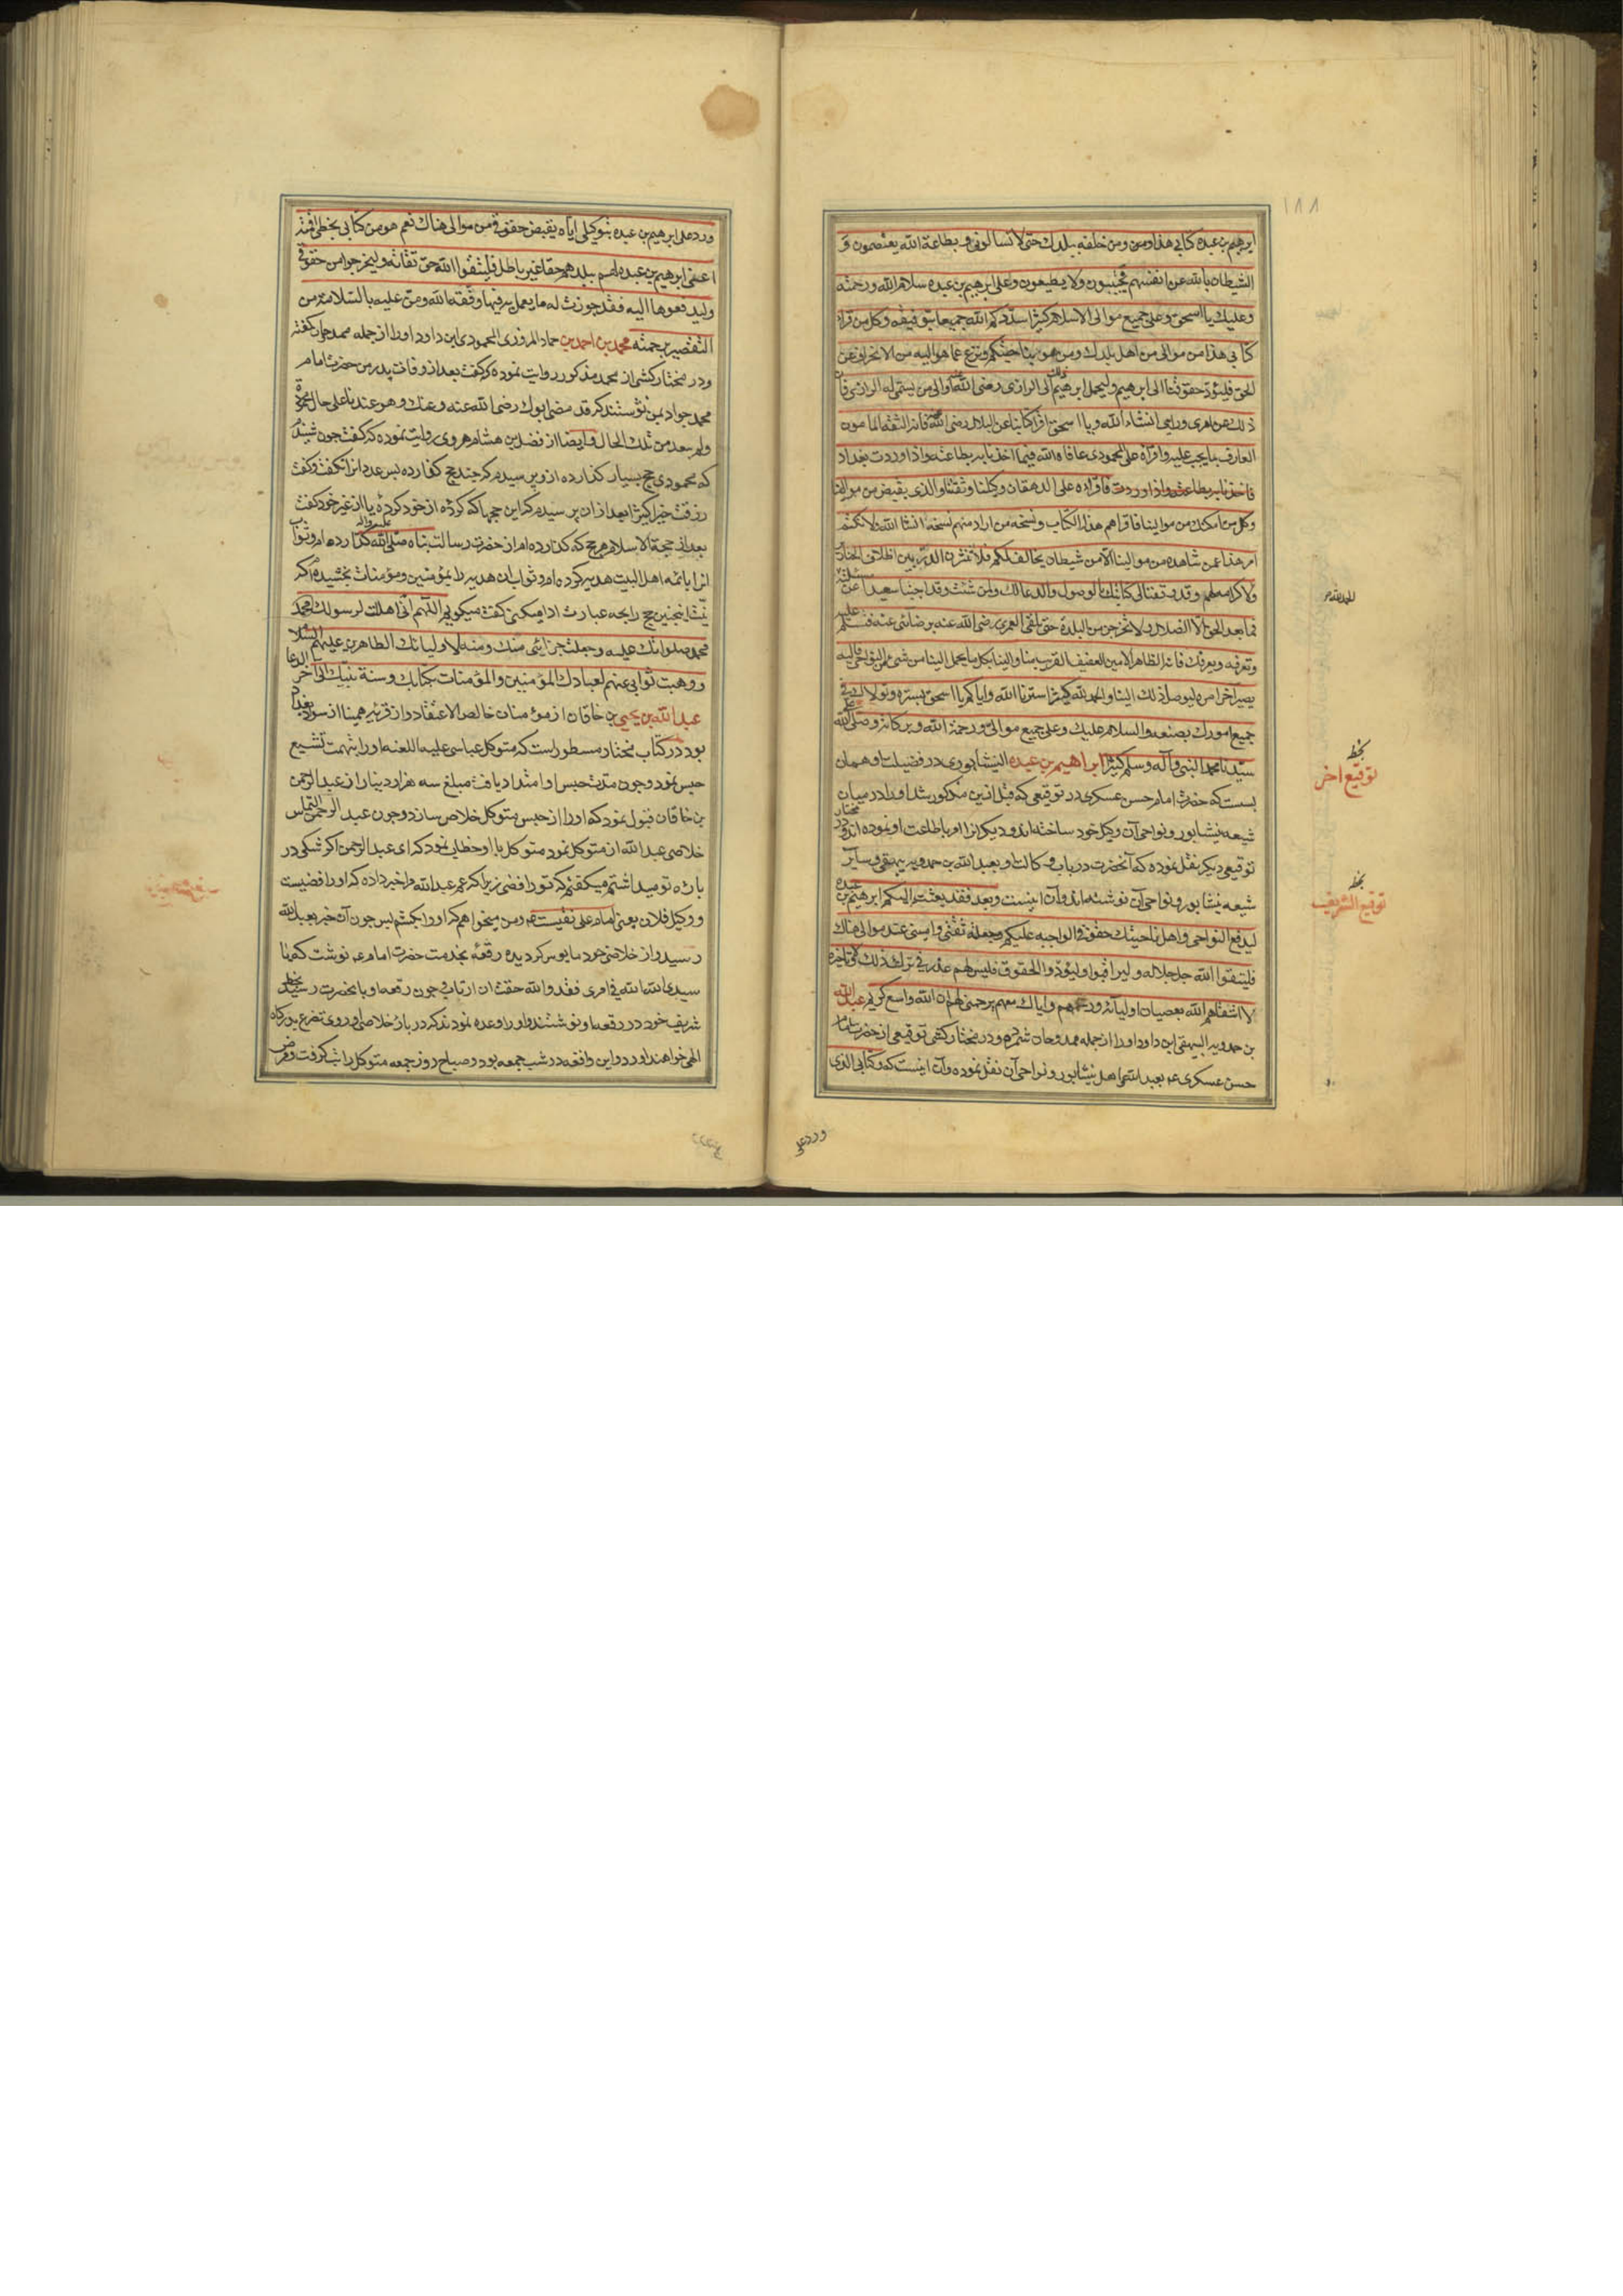 ١٨٨
ابرهيم بن عبده كتابي هذا ومن خلفه ببلدك حتى لا تسألوني وبطاعة الله يعتصمون و
الشيطان بالله عن انفسهم يجتنبون ولا يطيعون وعلى ابرهيم بن عبده سلام الله ورحمته
وعليك يا اسحق وعلى جميع موالي السلام كثيرا سددكم الله جميعا بتوفيقه وكل من قرأ
كتابي هذا من موالي من اهل بلدك ومن هو بناحيتكم ونزع عما هو اليه من الانحراف عن
الحق فليؤد حقوقنا الى ابرهيم وليحمل ابرهيم ذلك الى الرازي رضى الله عنه او الى من يسمى له الرازي فان
ذلك عن امري ورايي انشاء الله ويا اسحق اقرأ كتابنا على البلالي رضى الله عنه فانه الثقة المامون
العارف بما يجب عليه واقرأه على المحمودي عافاه الله فما احمدنا به بطاعته واذا وردت بغداد
فاقرأه على الدهقان وكيلنا وثقتنا والذي يقبض من موالينا
وكل من امكنك من موالينا فاقراهم هذا الكتاب وينسخه من اراد منهم نسخه انشا الله ولا تكتم
امر هذا عمن شاهده من موالينا الا من شيطان يخالف لكم فلا تنثرن الدر بين اظلاف الخنازير
ولا كرامة لهم وقد وقعنا في كتابك بالوصول والدعا لك ولمن شئت وقد اجبنا سعيدا عن مسئلته
فما بعد الحق الا الضلال ولا تخرجن من البلدة حتى تلقى العمري رضى الله عنه برضائي عنه فتسلم عليه
وتعرفه ويعرفك فانه الطاهر الامين العفيف القريب منا والينا فكل ما يحمل الينا من شئ من النواحي فاليه
يصير اخر امره ليوصل ذلك الينا والحمد لله كثيرا سترنا الله واياكم يا اسحق بستره وتولاك في
جميع امورك بصنعه والسلام عليك وعلى جميع موالي ورحمة الله وبركاته وصلى الله على
سيدنا محمد النبي وآله وسلم كثيرا ابراهيم بن عبده النيشابوري در فضيلت او همان
بسست كه حضرت امام حسن عسكرى در توقيعى كه قبل ازين مذكور شد او را در ميان
شيعه نيشابور ونواحى آن وكيل خود ساخته اند و ديكرانرا او باطاعت او نموده اند و در مختار
توقيعى ديكر نقل نموده كه آنحضرت در باب وكالت او بعبد الله بن حمدويه بيهقى وساير
شيعه نيشابور ونواحى آن نوشته اند وآن اينست وبعد فقد بعثت اليكم ابرهيم بن عبده
ليدفع النواحي واهل ناحيتك حقوقي الواجبه عليكم وجعلته ثقتي واميني عند موالي هناك
فليتقوا الله جل جلاله وليراقبوا وليؤدوا الحقوق فليس لهم عذر في ترك ذلك ولا تأخيره
لا اشقاهم الله بعصيان اوليائه ورحمهم واياك معهم برحمتي لهم ان الله واسع كريم عبد الله
بن حمدويه البيهقي ابن داود او را از جمله ممدوحان شمرده ودر مختار كشى توقيعى از حضرت امام
حسن عسكرى ع بعبد الله با اهل نيشابور ونواحى آن نقل نموده وآن اينست كه وكتابي الذي
بخط
توقيع اخر
بخط
توقيع الشريف
ورد على
ورد على ابرهيم بن عبده بتوكيلي اياه يقبض حقوقي من موالي هناك نعم هو من كتابي بخطي اقمته
اعني ابرهيم بن عبده لهم ببلدهم حقا غير باطل فليتقوا الله حق تقاته وليخرجوا من حقوقي
وليدفعوها اليه فقد جوزت له ما يعمل به فيها وفقه الله ومن عليه بالسلامة من
التقصير برحمته محمد بن احمد بن حماد المروزي المحمودي ابن داود او را از جمله ممدوحان كفته
ودر مختار كشى از محمد مذكور روايت نموده كه كفت بعد از وفات پدر من حضرت امام
محمد جواد بمن نوشتند كه قد مضى ابوك رضى الله عنه وعنك وهو عندنا على حال محمودة
ولم يبعد من تلك الحال وايضا از فضل بن هشام هروى روايت نموده كه كفت چون شنيدم
كه محمودى حج بسيار كذارده ازو پرسيدم كه چند حج كذارده پس عدد انرا نكفت وكفت
رزقت خيرا كثيرا بعد ازان پرسيدم كه اين حجها كه كردۀ از خود كردۀ يا از غير خود كفت
بعد از حجة الاسلام هر حج كه كذارده ام از حضرت رسالت پناه صلى الله عليه واله كذارده ام وثواب
انرا بائمه اهل البيت هديه كرده ام وثواب ان هديه را بمؤمنين ومؤمنات بخشيده ام
چنين حج را بچه عبارت ادا ميكنى كفت ميكويم اللهم انى اهللت لرسولك محمد
محمد صلواتك عليه وجعلت جزائي منك ومنه لاوليائك الطاهرين عليهم السلام
ووهبت ثوابي عنهم لعبادك المؤمنين والمؤمنات بكتابك وسنة نبيك الى آخر الدعا
عبد الله بن يحيى بن خاقان از مؤمنان خالص الاعتقاد واز قريه همينا از سواد بغداد
بود در كتاب مختار مسطور است كه متوكل عباسى عليه اللعنه او را بتهمت تشيع
حبس نمود وچون مدت حبس او امتداد يافت مبلغ سه هزار دينار از عبد الرحمن
بن خاقان قبول نمود كه او را از حبس متوكل خلاص سازد وچون عبد الرحمن التماس
خلاصى عبد الله از متوكل نمود متوكل با او خطاب نمود كه اى عبد الرحمن اكر شكى در
بارۀ تو ميداشتم ميكفتم كه تو رافضى زيرا كه عم عبد الله واخبر داده كه او رافضيست
ووكيل فلان يعنى امام على نقيست ومن ميخواهم كه او را بكشم پس چون آن خبر بعبد الله
رسيد واز خلاصى خود مايوس كرديد رقعۀ بخدمت حضرت امام ع نوشت كه يا
سيدي الله الله في امري فقد والله خفت ان ارتاب چون رقعه او بانحضرت رسيد بخط
شريف خود در رقعه او نوشتند واو را وعده نمودند كه در بارۀ خلاصى او روى تضرع بدركاه
الهى خواهند اورد واين واقعه در شب جمعه بود وصباح روز جمعه متوكل را تب كرفت